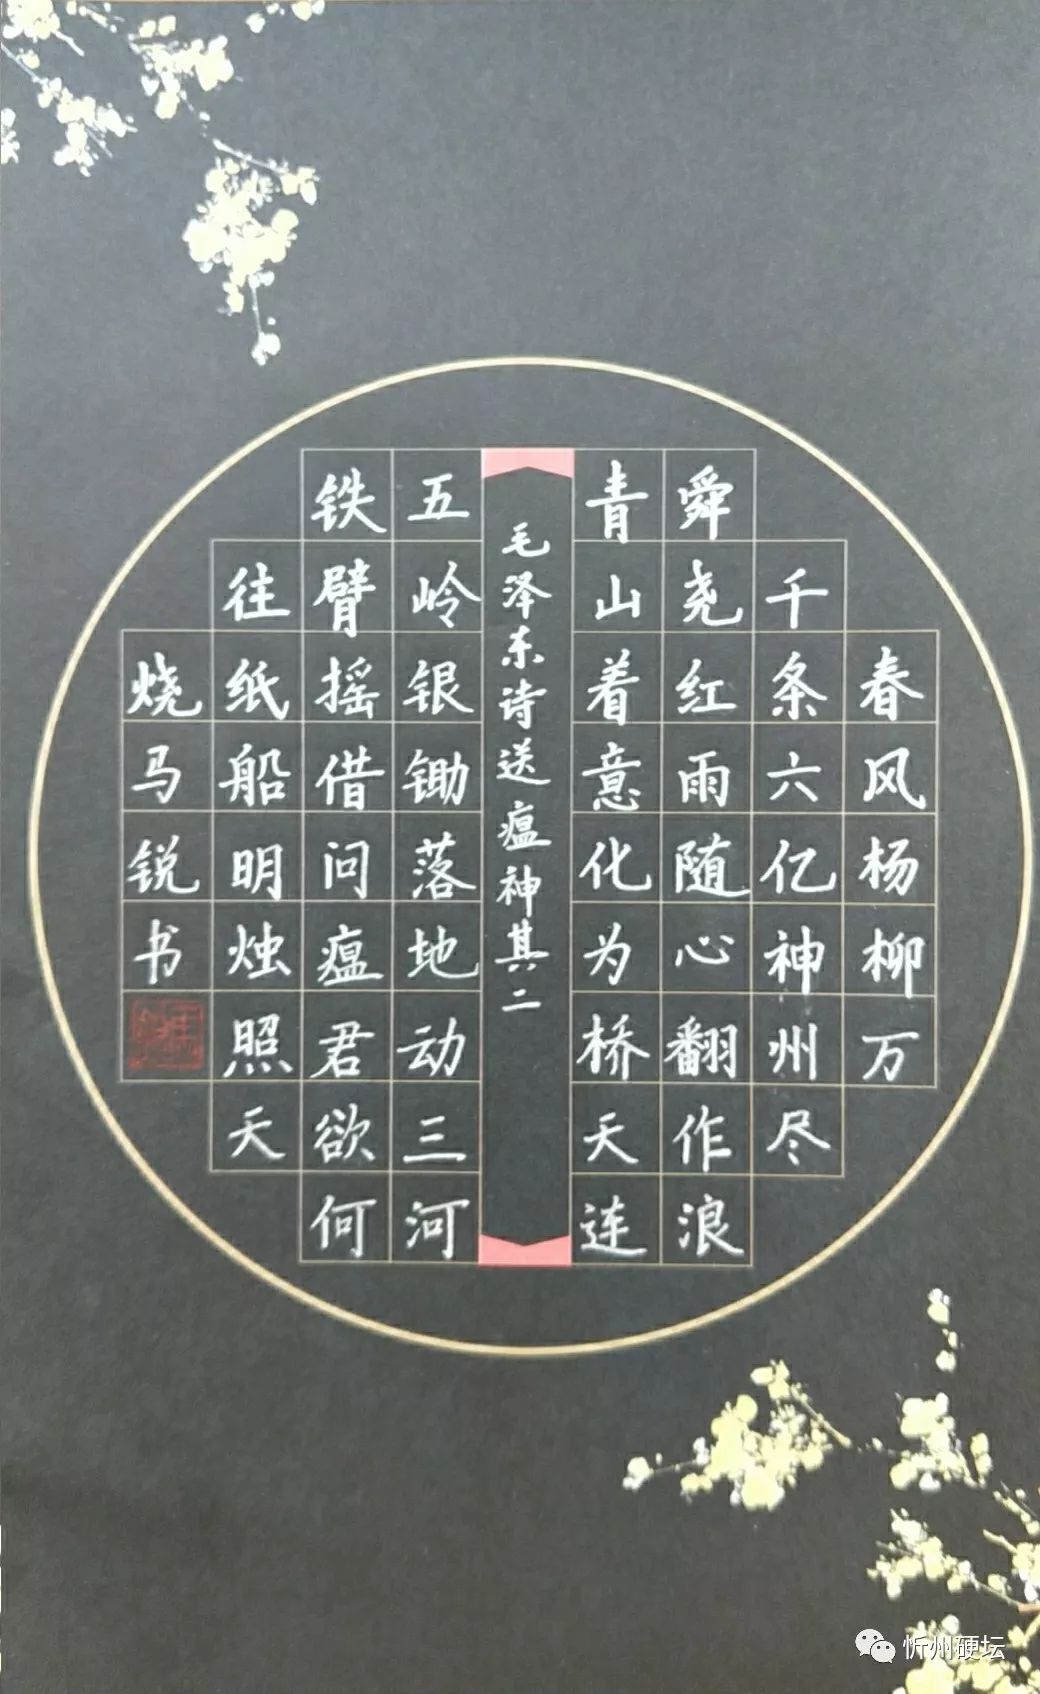 春风杨柳万
千条六亿神州尽
舜尧红雨随心翻作浪
青山着意化为桥天连
毛泽东诗送瘟神其二
五岭银锄落地动三河
铁臂摇借问瘟君欲何
往纸船明烛照天
烧马锐书
忻州硬坛